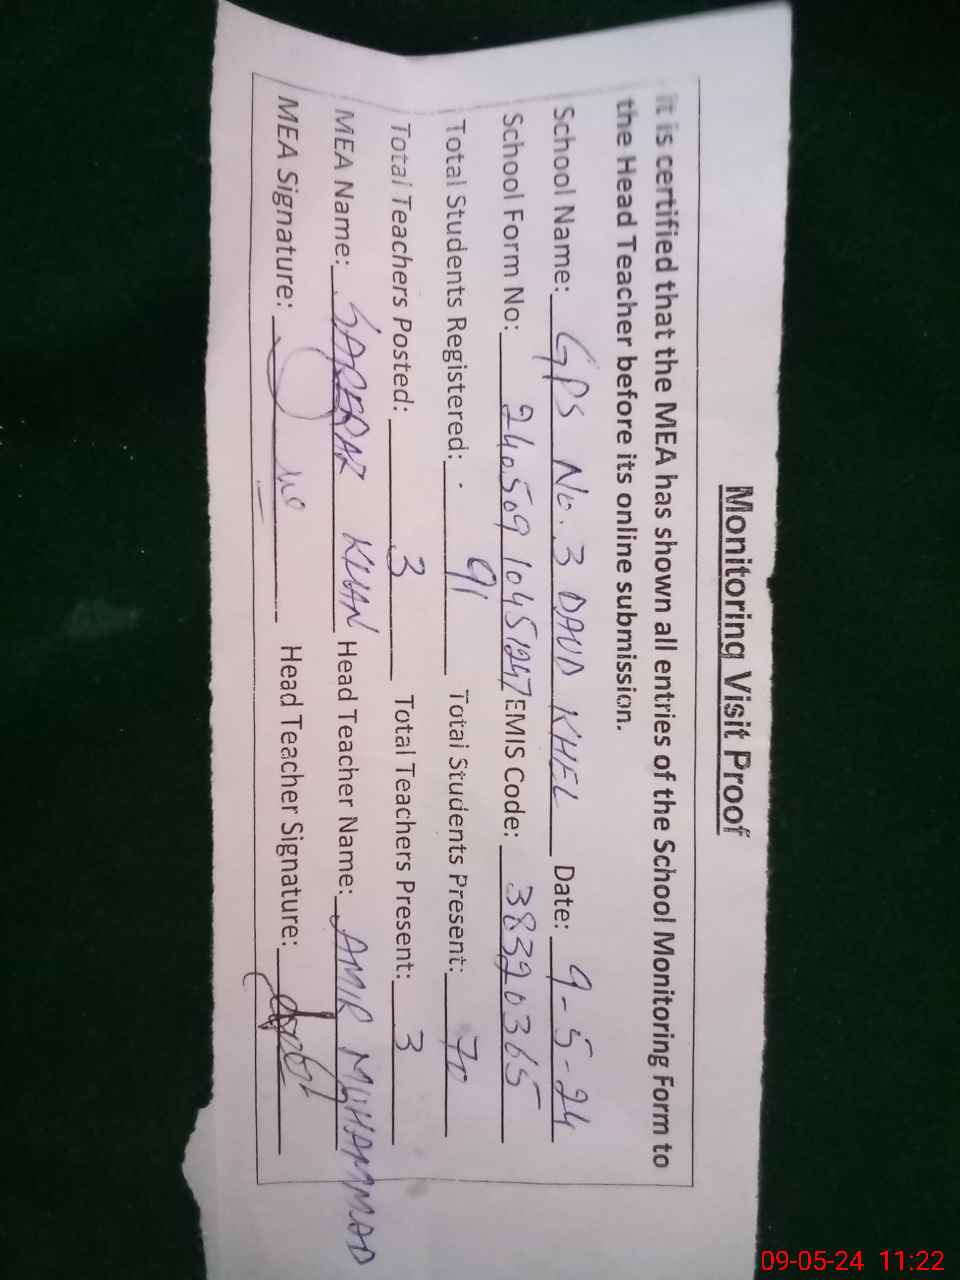 Monitoring Visit Proof
it is certified that the MEA has shown all entries of the School Monitoring Form to
the Head Teacher before its online submission.
School Name: GPS No. 3 DAUD KHEL Date: 9-5-24
School Form No: 240509 1045 1247 EMIS Code: 38320365
Total Students Registered: 91 Total Students Present: 70
Total Teachers Posted: 3 Total Teachers Present: 3
MEA Name: SARFRAZ KHAN Head Teacher Name: AMIR MUHAMMAD
MEA Signature: Head Teacher Signature:
09-05-24 11:22